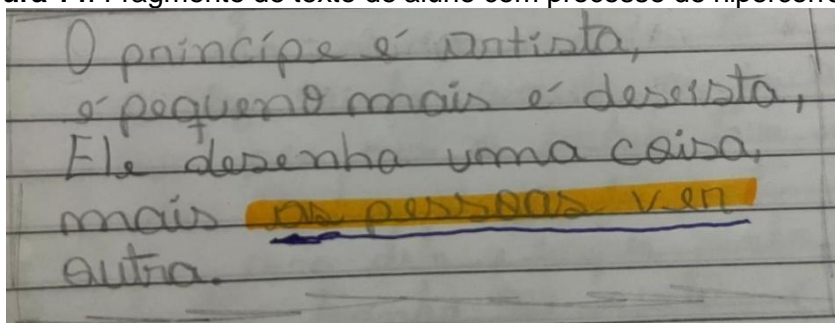 O príncipe é artista,
é pequeno mais é deseista,
Ele desenha uma coisa,
mais as pessoas ven
outra.